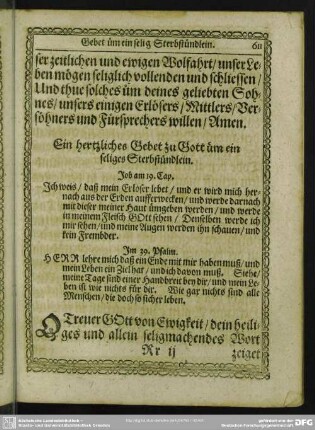 Gebet üm ein selig Sterbstündlein. 611
ser zeitlichen und ewigen Wolfahrt / unser Le-
ben mögen seliglich vollenden und schliessen /
Und thue solches üm deines geliebten Soh-
nes / unsers einigen Erlösers / Mittlers / Ver-
söhners und Fürsprechers willen / Amen.
Ein hertzliches Gebet zu Gott üm ein
seliges Sterbstündlein.
Job am 19. Cap.
Ich weis / daß mein Erlöser lebet / und er wird mich her-
nach aus der Erden aufferwecken / und werde darnach
mit dieser meiner Haut ümgeben werden / und werde
in meinem Fleisch GOtt sehen / Denselben werde ich
mir sehen / und meine Augen werden ihn schauen / und
kein Frembder.
Im 39. Psalm.
HERR lehre mich daß ein Ende mit mir haben muß / und
mein Leben ein Ziel hat / und ich davon muß. Siehe /
meine Tage sind einer Handbreit bey dir / und mein Le-
ben ist wie nichts für dir. Wie gar nichts sind alle
Menschen / die doch so sicher leben.
O Treuer GOtt von Ewigkeit / dein heili-
ges und allein seligmachendes Wort
Rr ij zeiget